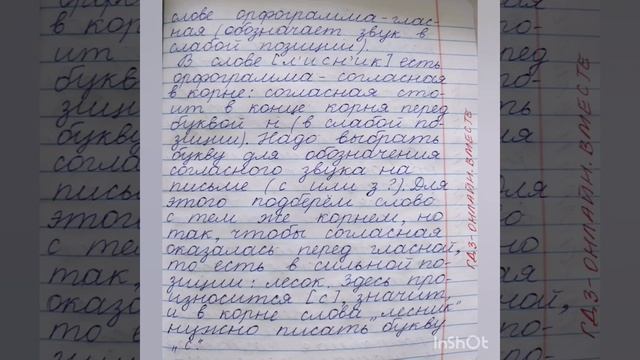 слове орфограмма - глас-
ная (обозначает звук в
слабой позиции).
В слове [л'исн'ик] есть
орфограмма - согласная
в корне: согласная сто-
ит в конце корня перед
буквой н (в слабой по
зиции). Надо выбрать
букву для обозначения
согласного звука на
письме (с или з?). Для
этого подберём слово
с тем же корнем, но
так, чтобы согласная
оказалась перед гласной,
то есть в сильной по-
зиции: лесок. Здесь про-
износится [с], значит,
и в корне слова „лесник"
нужно писать букву
„с"
ГДЗ-ОНЛАЙН.ВМЕСТЕ
InShOt